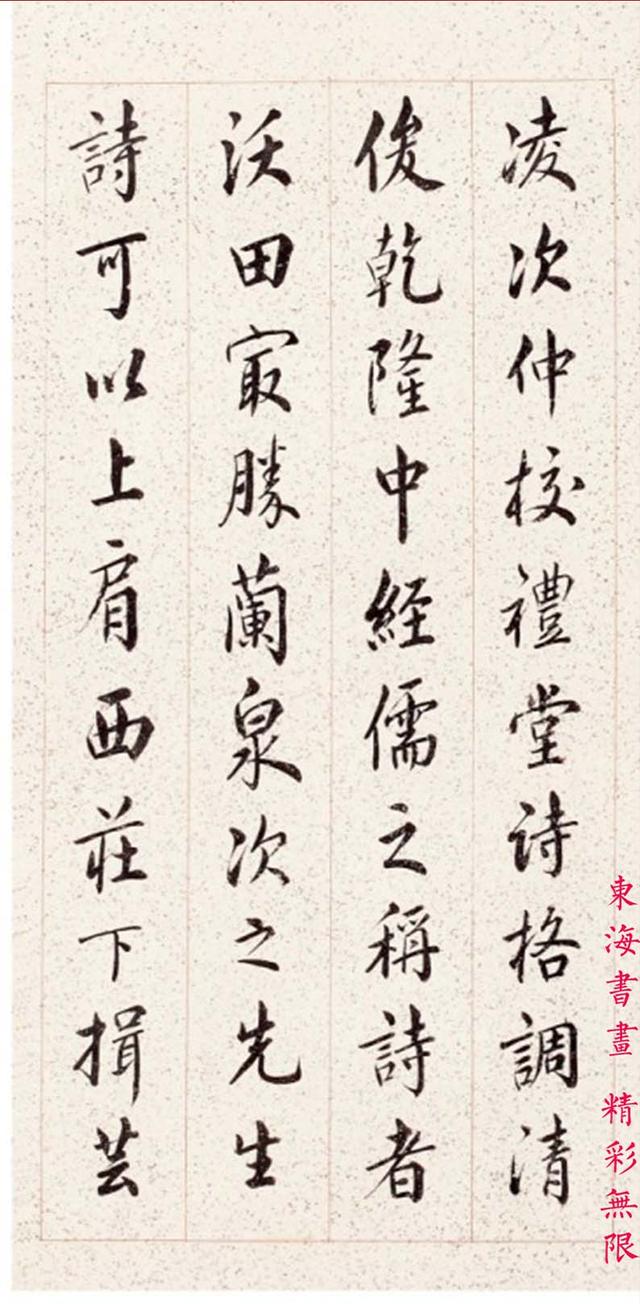 凌次仲校禮堂詩格調清
俊乾隆中経儒之稱詩者
沃田冣勝蘭泉次之先生
詩可以上肩西莊下揖芸
東海書畫 精彩無限